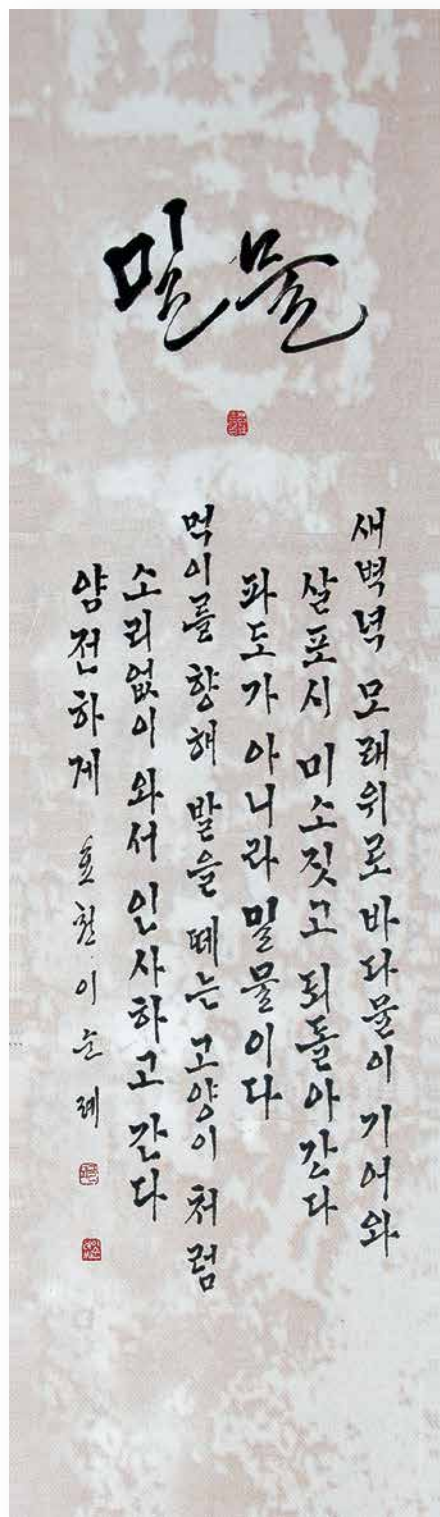 밀물
새벽녘 모래위로 바다물이 기어와
살포시 미소짓고 되돌아간다
파도가 아니라 밀물이다
먹이를 향해 발을 떼는 고양이 처럼
소리없이 와서 인사하고 간다
얌전하게 효천 이순례